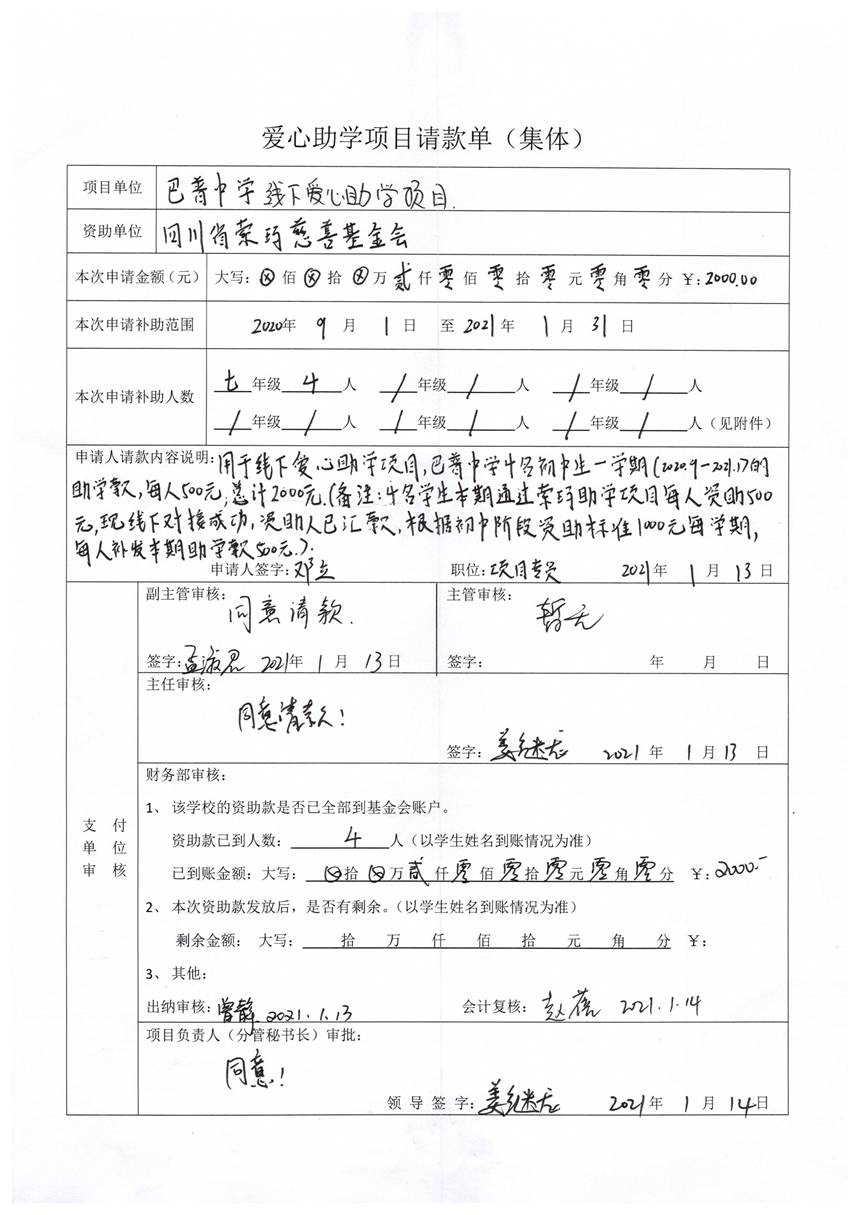 爱心助学项目请款单（集体）
项目单位 巴普中学线下爱心助学项目.
资助单位 四川省索玛慈善基金会
本次申请金额（元） 大写：⊗佰⊗拾⊗万贰仟零佰零拾零元零角零分 ¥：2000.00
本次申请补助范围 2020年 9月 1日 至2021年 1月31日
本次申请补助人数 七年级 4 人 / 年级 / 人 / 年级 / 人
/ 年级 / 人 / 年级 / 人 / 年级 / 人（见附件）
申请人请款内容说明：用于线下爱心助学项目,巴普中学4名初中生一学期(2020.9-2021.1)的
助学款,每人500元,总计2000元.(备注:4名学生本期通过索玛助学项目每人资助500
元,现线下对接成功,资助人已汇款,根据初中阶段资助标准1000元每学期,
每人补发本期助学款500元.).
申请人签字：邓立 职位：项目专员 2021年 1月13日
副主管审核： 同意请款.
签字：孟淑君 2021年 1月 13日
主管审核： 暂无
签字： 年 月 日
主任审核：
同意请款!
签字： 2021年 1月13日
支付
单位
审核
财务部审核：
1、 该学校的资助款是否已全部到基金会账户。
资助款已到人数： 4 人（以学生姓名到账情况为准）
已到账金额：大写： ⊗拾⊗万贰仟零佰零拾零元零角零分 ¥：2000.-
2、 本次资助款发放后，是否有剩余。（以学生姓名到账情况为准）
剩余金额： 大写： 拾 万 仟 佰 拾 元 角 分 ¥：
3、 其他：
出纳审核：曾静 2021.1.13 会计复核： 赵蓓 2021.1.14
项目负责人（分管秘书长）审批：
同意!
领导签字： 2021年 1月 14日